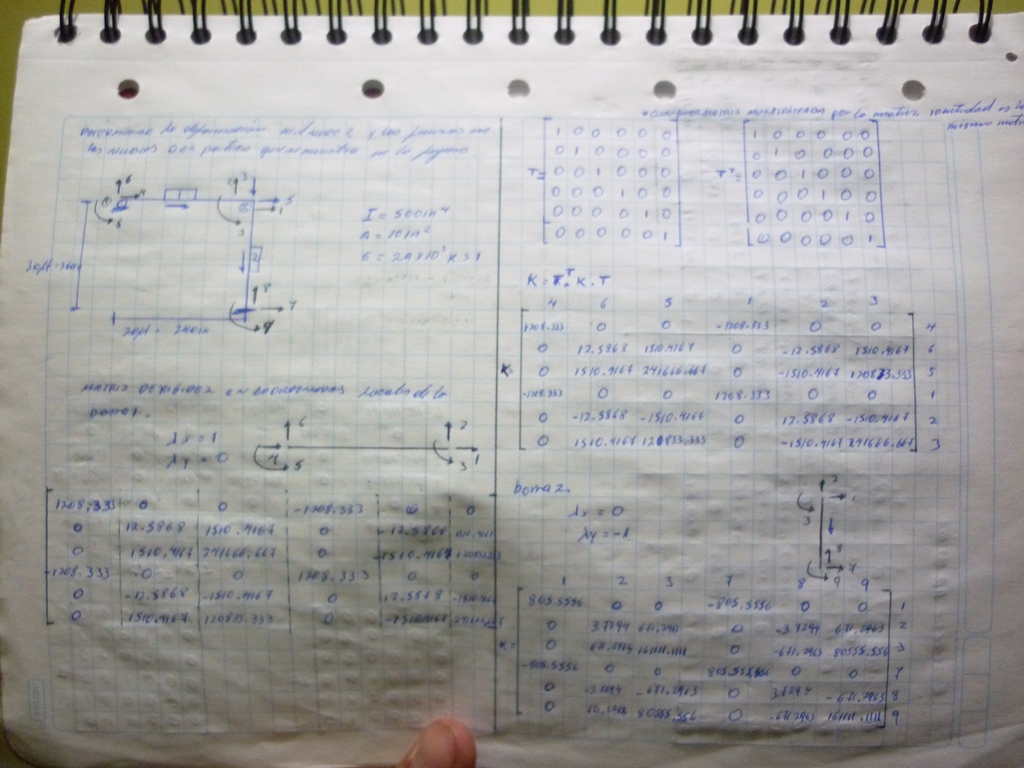 Determinar la deformación en el nudo 2 y las fuerzas en
los nudos del portico que se muestra en la figura
6
4
1
3
5
1
I = 500 in⁴
A = 10 in²
E = 29x10³ KSI
30ft = 360in
8
7
9
20ft = 240in
matriz de rigidez en coordenadas locales de la
barra 1.
λx = 1
λy = 0
6
2
4
1
5
3
1208.333 0 0 -1208.333 0 0
0 12.5868 1510.4167 0 -12.5868
0 1510.4167 241666.667 0 -1510.4167
-1208.333 0 0 1208.333 0 0
0 -12.5868 -1510.4167 0 12.5868
0 1510.4167 120833.333 0 -1510.4167
por la matriz identidad es la
misma matriz
T =
1 0 0 0 0 0
0 1 0 0 0 0
0 0 1 0 0 0
0 0 0 1 0 0
0 0 0 0 1 0
0 0 0 0 0 1
Tᵀ =
1 0 0 0 0 0
0 1 0 0 0 0
0 0 1 0 0 0
0 0 0 1 0 0
0 0 0 0 1 0
0 0 0 0 0 1
K = Tᵀ K · T
4 6 5 1 2 3
K =
1208.333 0 0 -1208.333 0 0 4
0 12.5868 1510.4167 0 -12.5868 1510.4167 6
0 1510.4167 241666.667 0 -1510.4167 120833.333 5
-1208.333 0 0 1208.333 0 0 1
0 -12.5868 -1510.4167 0 12.5868 -1510.4167 2
0 1510.4167 120833.333 0 -1510.4167 241666.667 3
barra 2.
λx = 0
λy = -1
2
1
3
8
7
9
1 2 3 7 8 9
K =
805.5556 0 0 -805.5556 0 0 1
0 3.7294 671.2963 0 -3.7294 671.2963 2
0 671.2963 161111.1111 0 -671.2963 80555.556 3
-805.5556 0 0 805.5556 0 0 7
0 -3.7294 -671.2963 0 3.7294 -671.2963 8
0 671.2963 80555.556 0 -671.2963 161111.1111 9